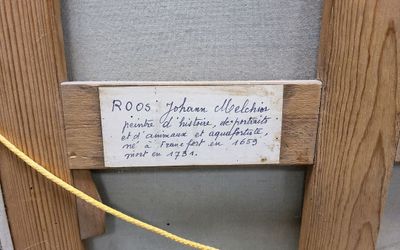 ROOS Johann Melchior
peintre d'histoire, de portraits
et d'animaux et aquafortiste,
né à Francfort en 1659
mort en 1731.